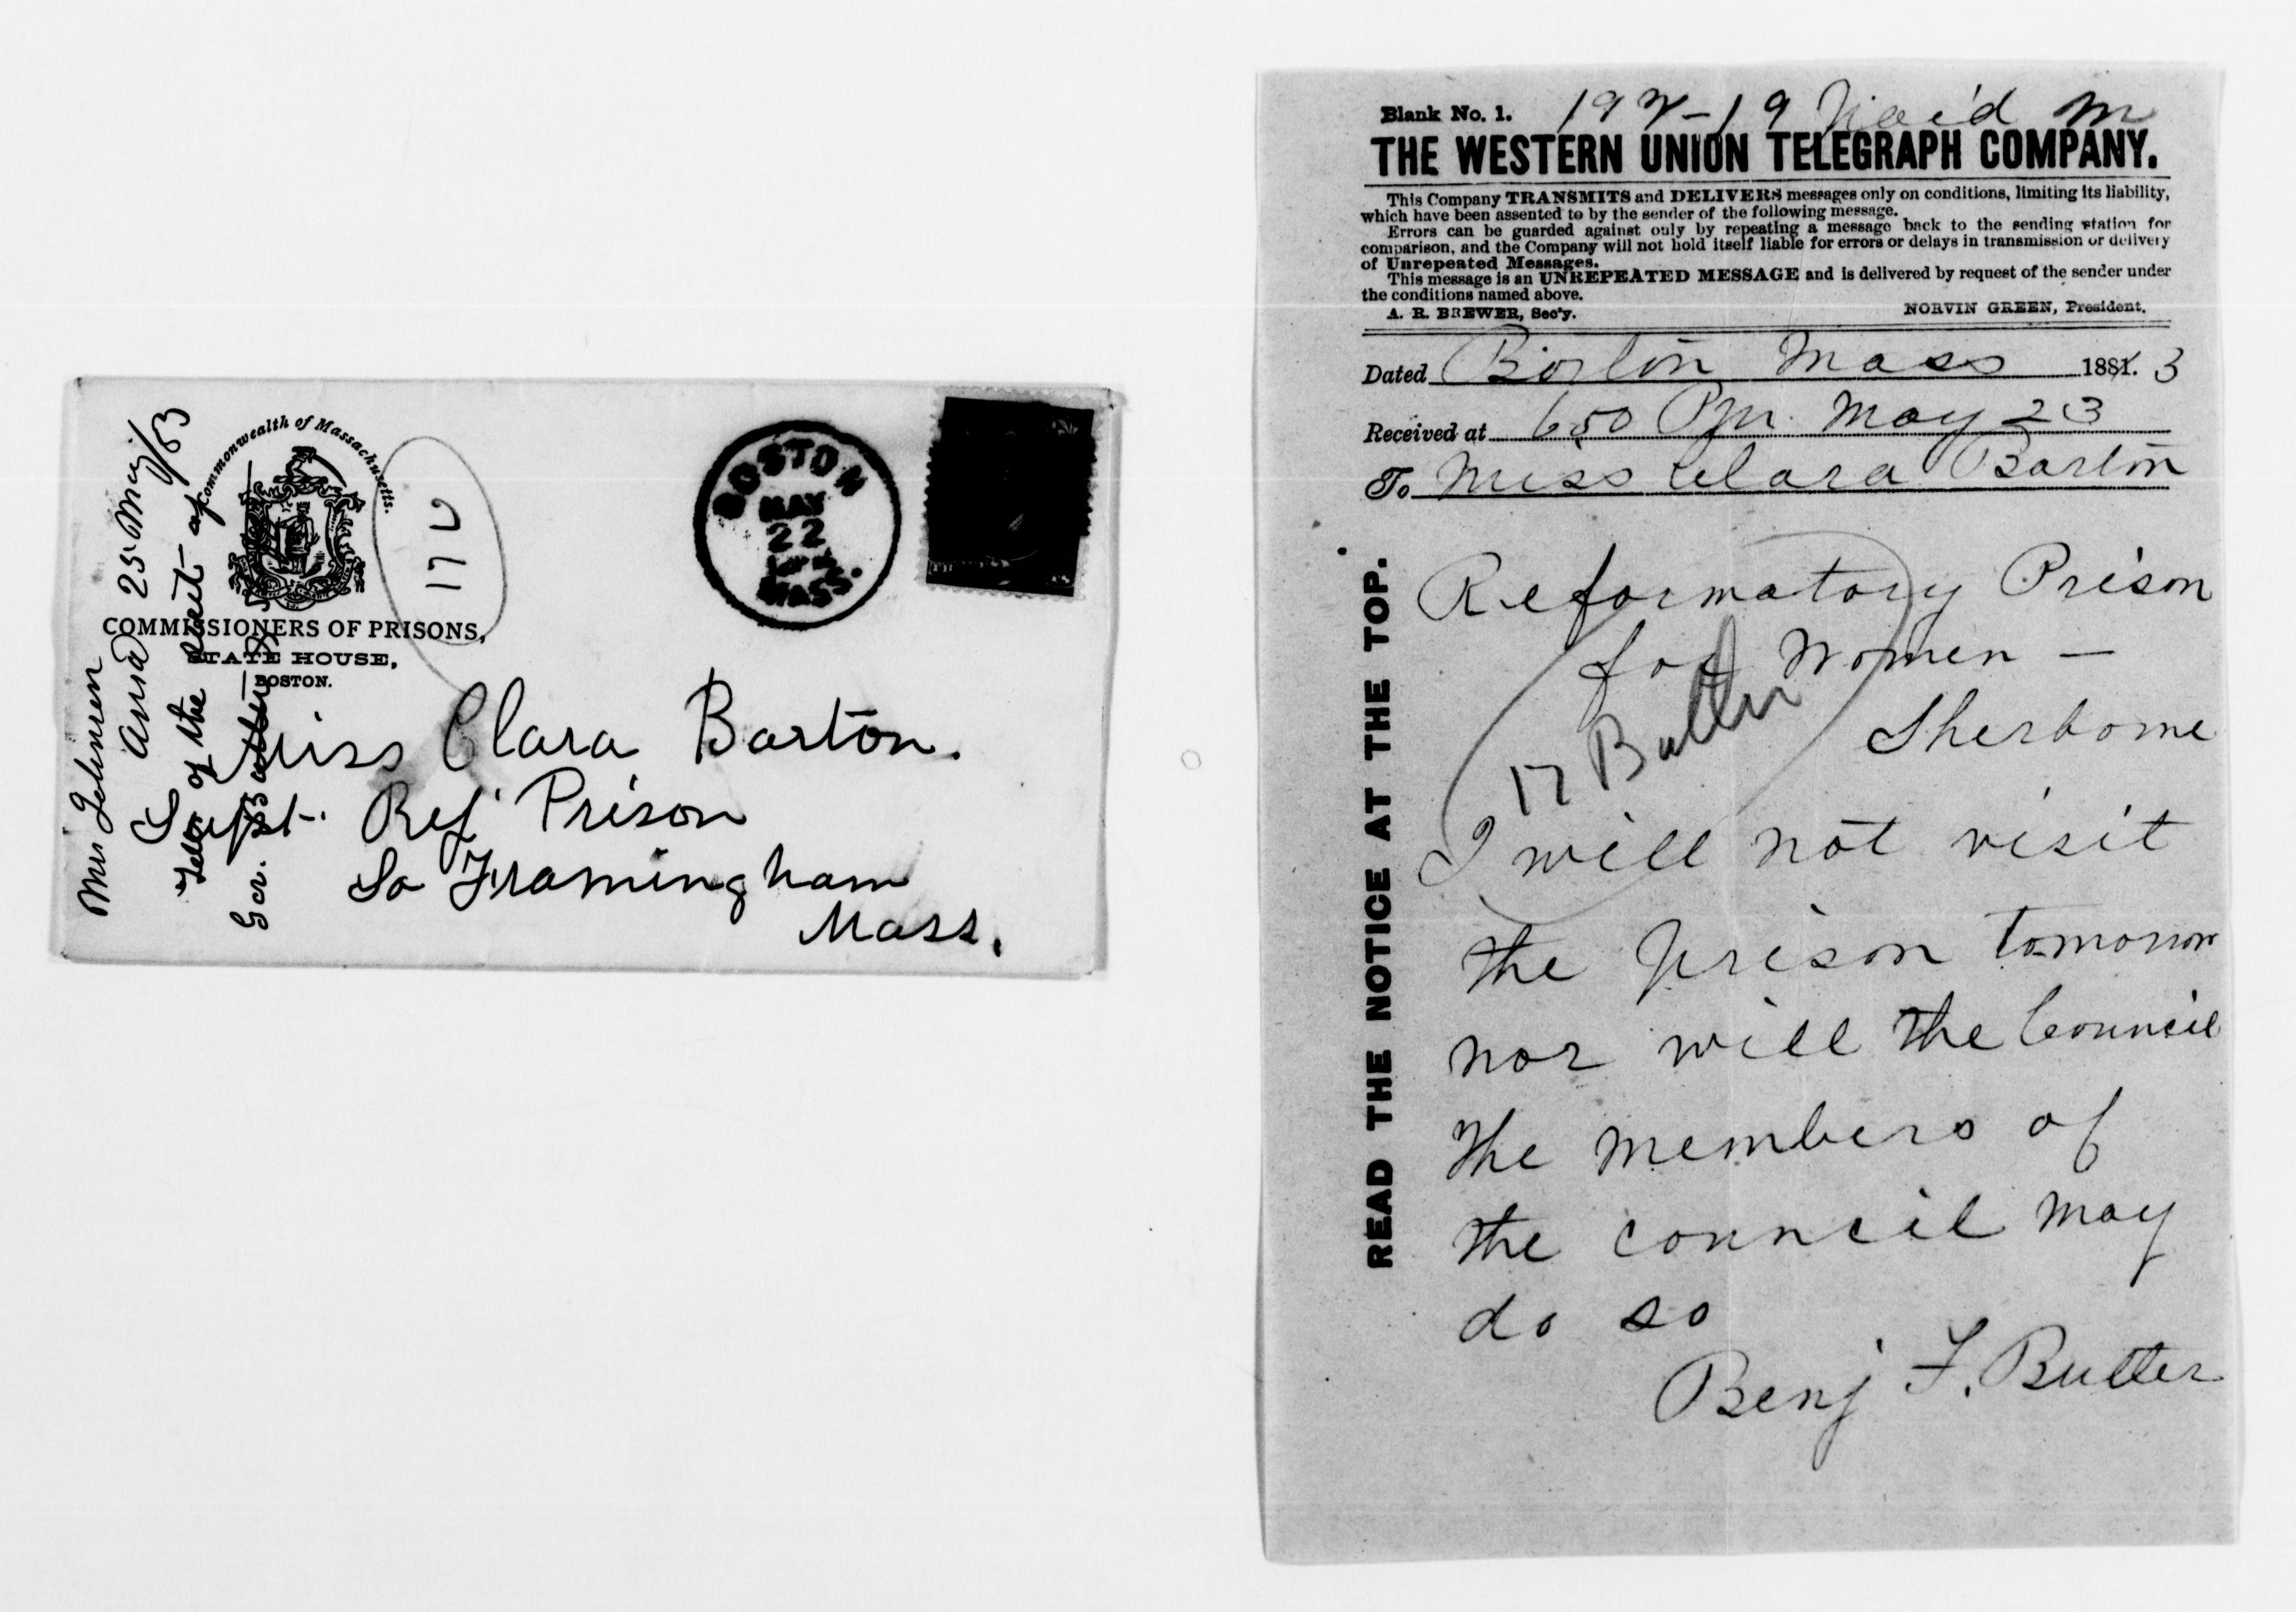 Commonwealth of Massachusetts.
COMMISSIONERS OF PRISONS,
STATE HOUSE,
BOSTON.
17 C
BOSTON
MAY
22
MASS.
Miss Clara Barton.
Supt. Ref Prison
So Framingham
Mass.
Mrs Johnson
Ansd 25 May/83
Tells of the visit of
Gov. Butler
Blank No. 1.
19 Paid
THE WESTERN UNION TELEGRAPH COMPANY.
This Company TRANSMITS and DELIVERS messages only on conditions, limiting its liability,
which have been assented to by the sender of the following message.
Errors can be guarded against only by repeating a message back to the sending station for
comparison, and the Company will not hold itself liable for errors or delays in transmission or delivery
of Unrepeated Messages.
This message is an UNREPEATED MESSAGE and is delivered by request of the sender under
the conditions named above.
A. R. BREWER, Sec'y. NORVIN GREEN, President.
Dated Boston Mass 1881. 3
Received at 650 Pm. May 23
To Miss Clara Barton
READ THE NOTICE AT THE TOP.
Reformatory Prison
for Women —
Sherborne
17 Butler
I will not visit
the prison tomorrow
nor will the Council
The members of
the council may
do so
Benj F. Butler